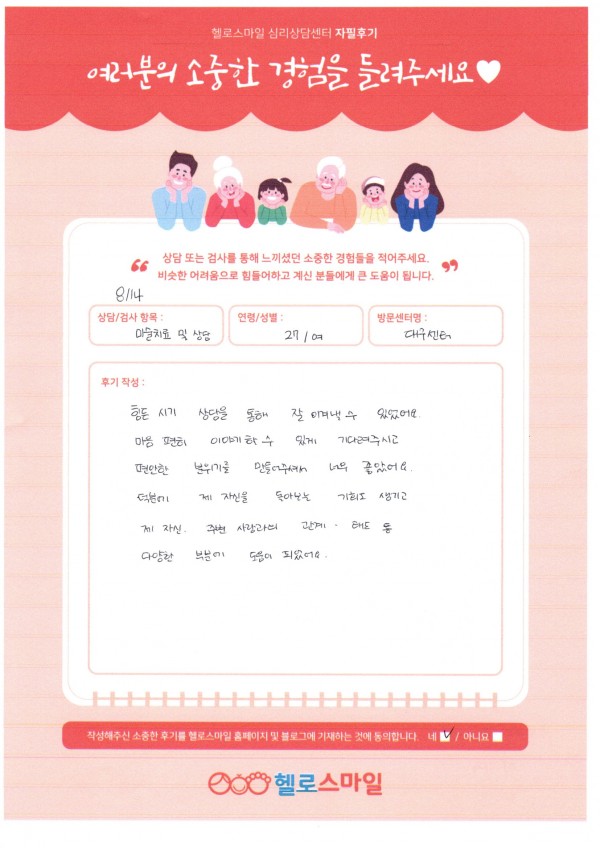 헬로스마일 심리상담센터 자필후기
여러분의 소중한 경험을 들려주세요
상담 또는 검사를 통해 느끼셨던 소중한 경험들을 적어주세요.
비슷한 어려움으로 힘들어하고 계신 분들에게 큰 도움이 됩니다.
8/14
상담/검사 항목 :
미술치료 및 상담
연령/성별 :
27/여
방문센터명 :
대구센터
후기 작성 :
힘든 시기 상담을 통해 잘 이겨낼 수 있었어요.
마음 편히 이야기할 수 있게 기다려주시고
편안한 분위기를 만들어주셔서 너무 좋았어요.
덕분에 제 자신을 돌아보는 기회도 생기고
제 자신, 주변 사람과의 관계 · 태도 등
다양한 부분에 도움이 되었어요.
작성해주신 소중한 후기를 헬로스마일 홈페이지 및 블로그에 기재하는 것에 동의합니다. 네 / 아니요
헬로스마일